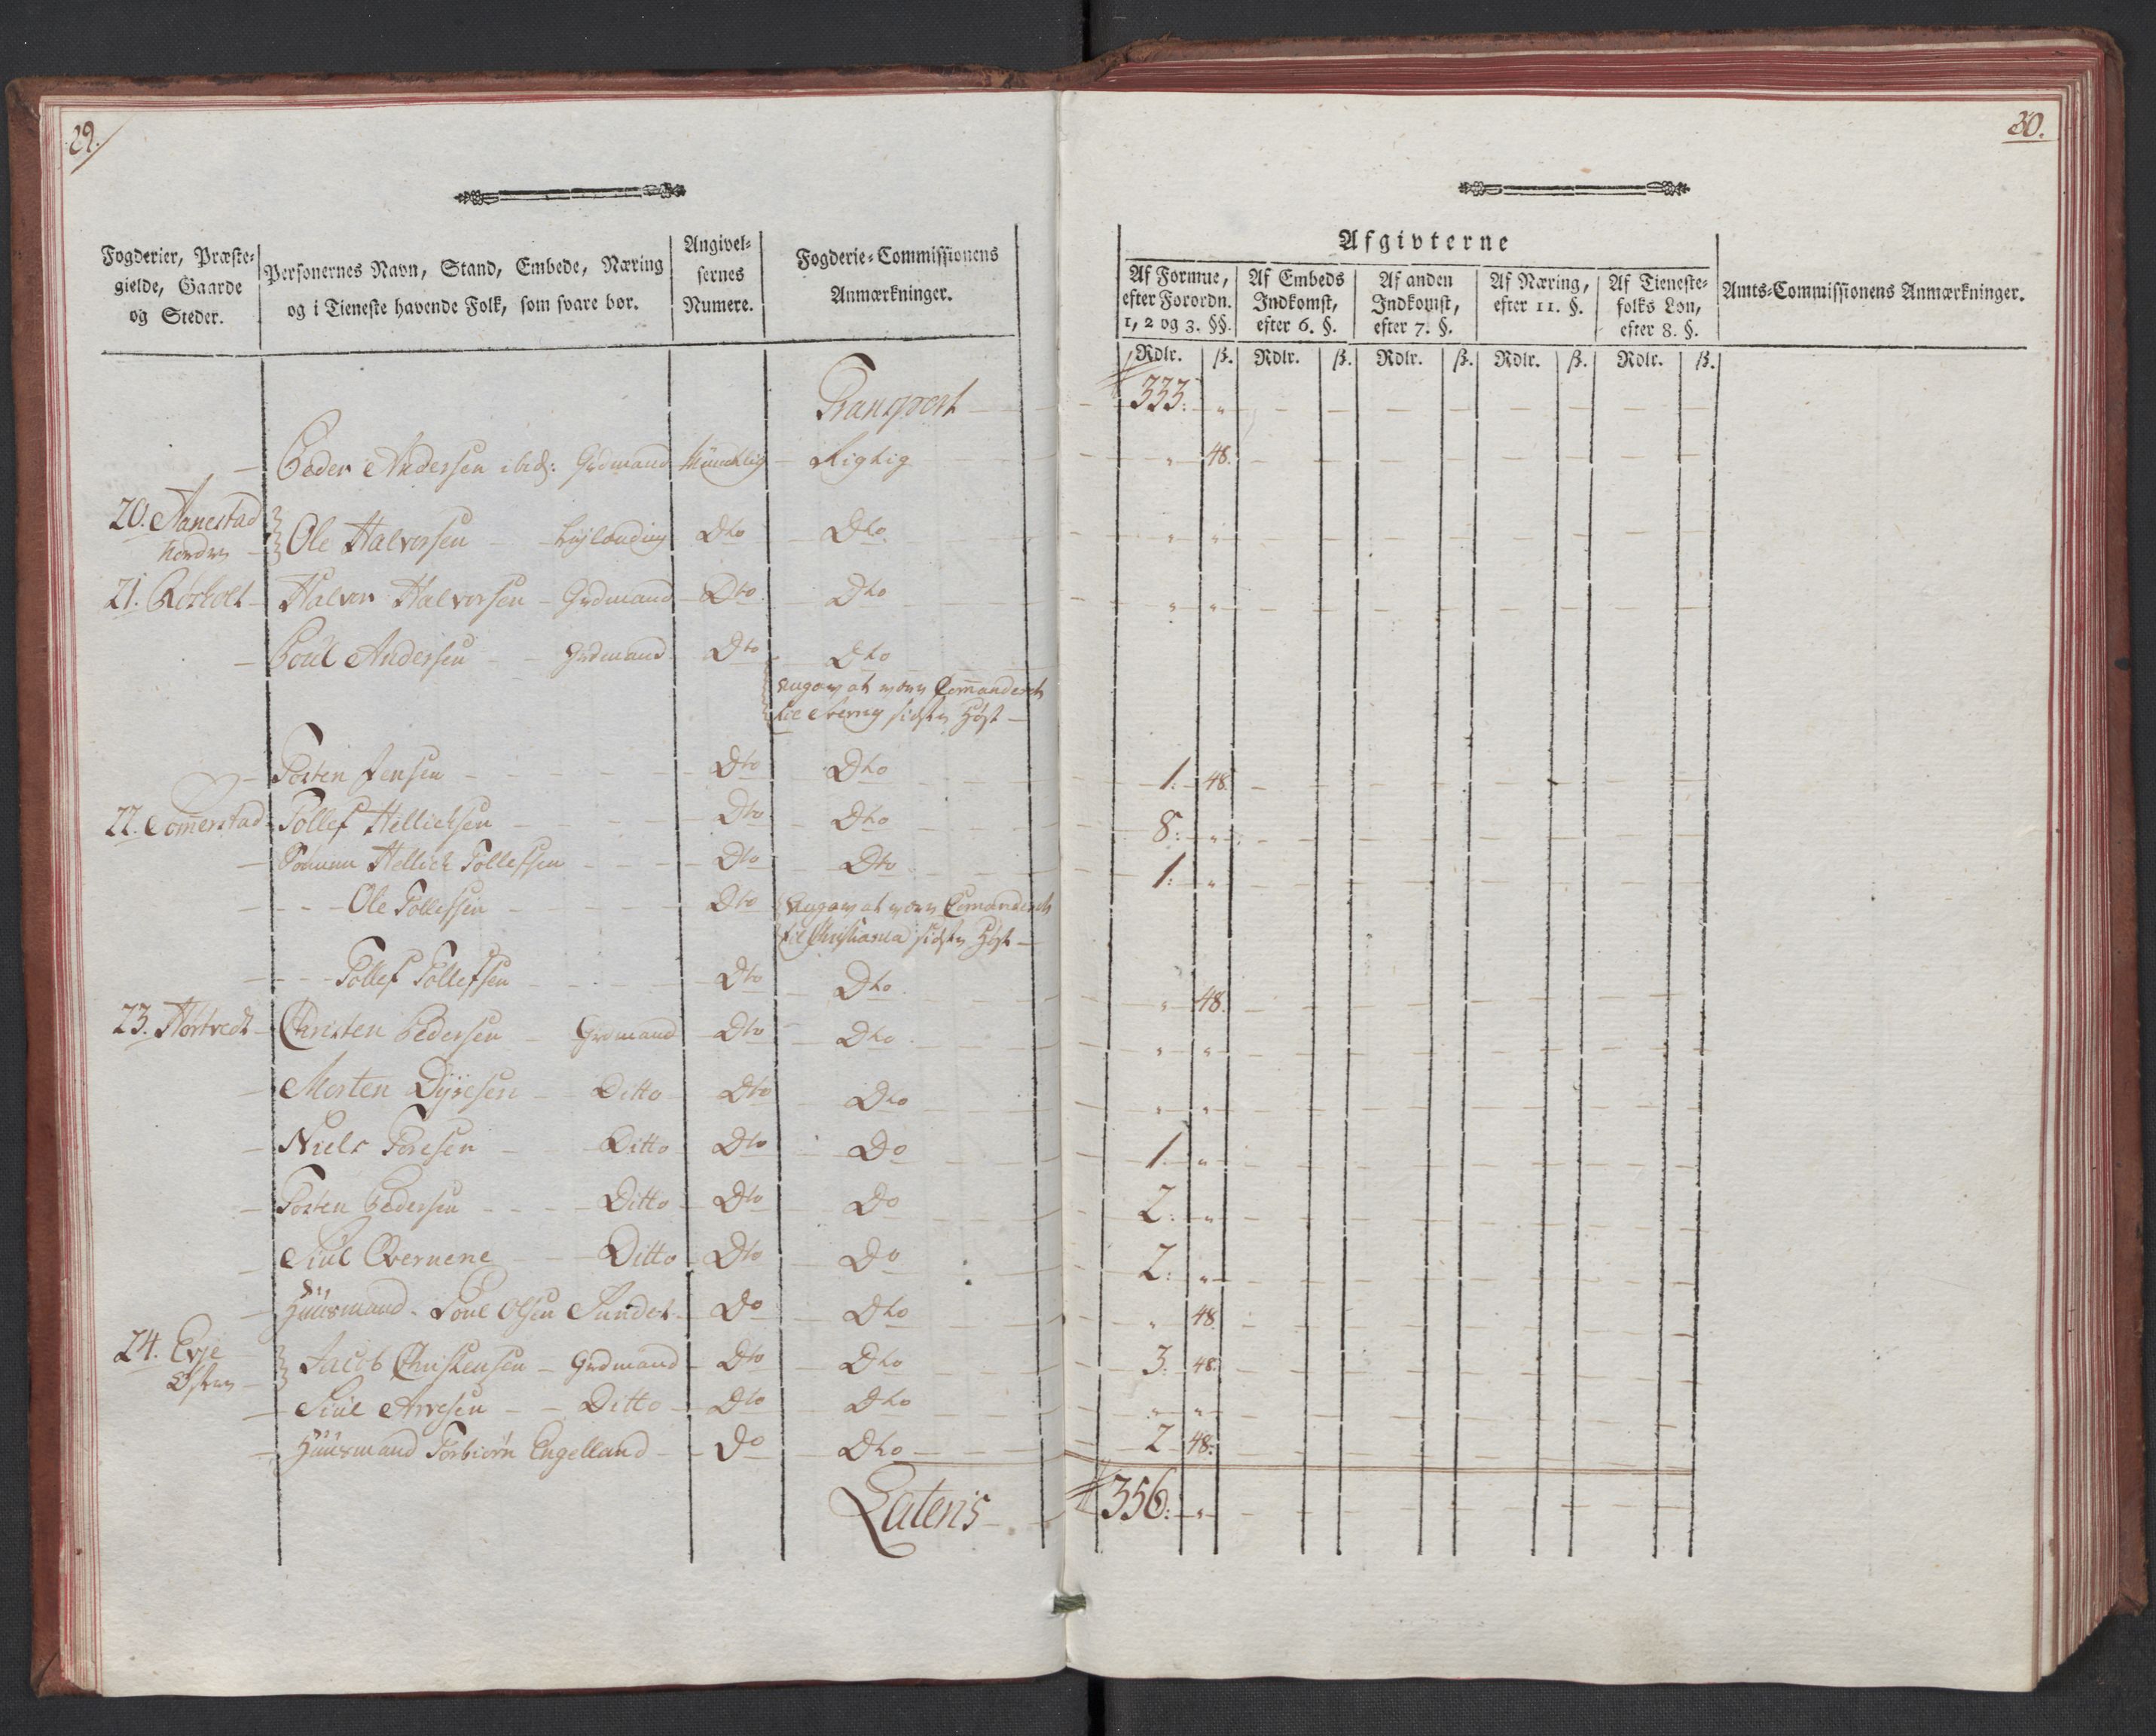 29.
Fogderier, Præste-
gielde, Gaarde
og Steder.
Personernes Navn, Stand, Embede, Næring
og i Tieneste havende Folk, som svare bør.
Angivel-
sernes
Numere.
Fogderie-Commissionens
Anmærkninger.
Transport
Peder Andersen ibid: Grdmand Mündtlig Rigtig
20. Aanestad
Nordre
Ole Halvorsen Dto Dto
21. Rørholt Halvor Halvorsen Grdmand Dto Dto
Poul Andersen Grdmand Dto Dto
Angav at være Comanderet
til sidste Høst
Torsten Jensen Dto Dto
22. Tollef Hellichsen Dto Dto
Hellich Tollefsen Dto Dto
Ole Tollefsen Dto Angav at være Comanderet
til Christiania sidste Høst
Tollef Tollefsen Dto Dto
23. Hørtvedt Christen Pedersen Grdmand Dto Dto
Morten Dyresen Ditto Dto Dto
Niels Toresen Ditto Dto Do
Torsten Pedersen Ditto Dto Do
Siul Qvernene Ditto Dto Do
Huusmand Poul Olsen Sundet Do Dto
24. Evje
Østre
Jacob Christensen Grdmand Dto Dto
Siul Arvesen Ditto Dto Dto
Huusmand Torbiørn Engelland Do Dto
Lateris
30.
Afgivterne
Af Formue,
efter Forordn.
1, 2 og 3. §§.
Af Embeds
Indkomst,
efter 6. §.
Af anden
Indkomst,
efter 7. §.
Af Næring,
efter 11. §.
Af Tieneste-
folks Løn,
efter 8. §.
Amts-Commissionens Anmærkninger.
Rdlr. ß. Rdlr. ß. Rdlr. ß. Rdlr. ß. Rdlr. ß.
333: "
" 48.
" "
" "
1. 48.
8: "
1: "
" 48.
" "
" "
1. "
2: "
2: "
" 48
3. 48.
" "
2 48.
356: "